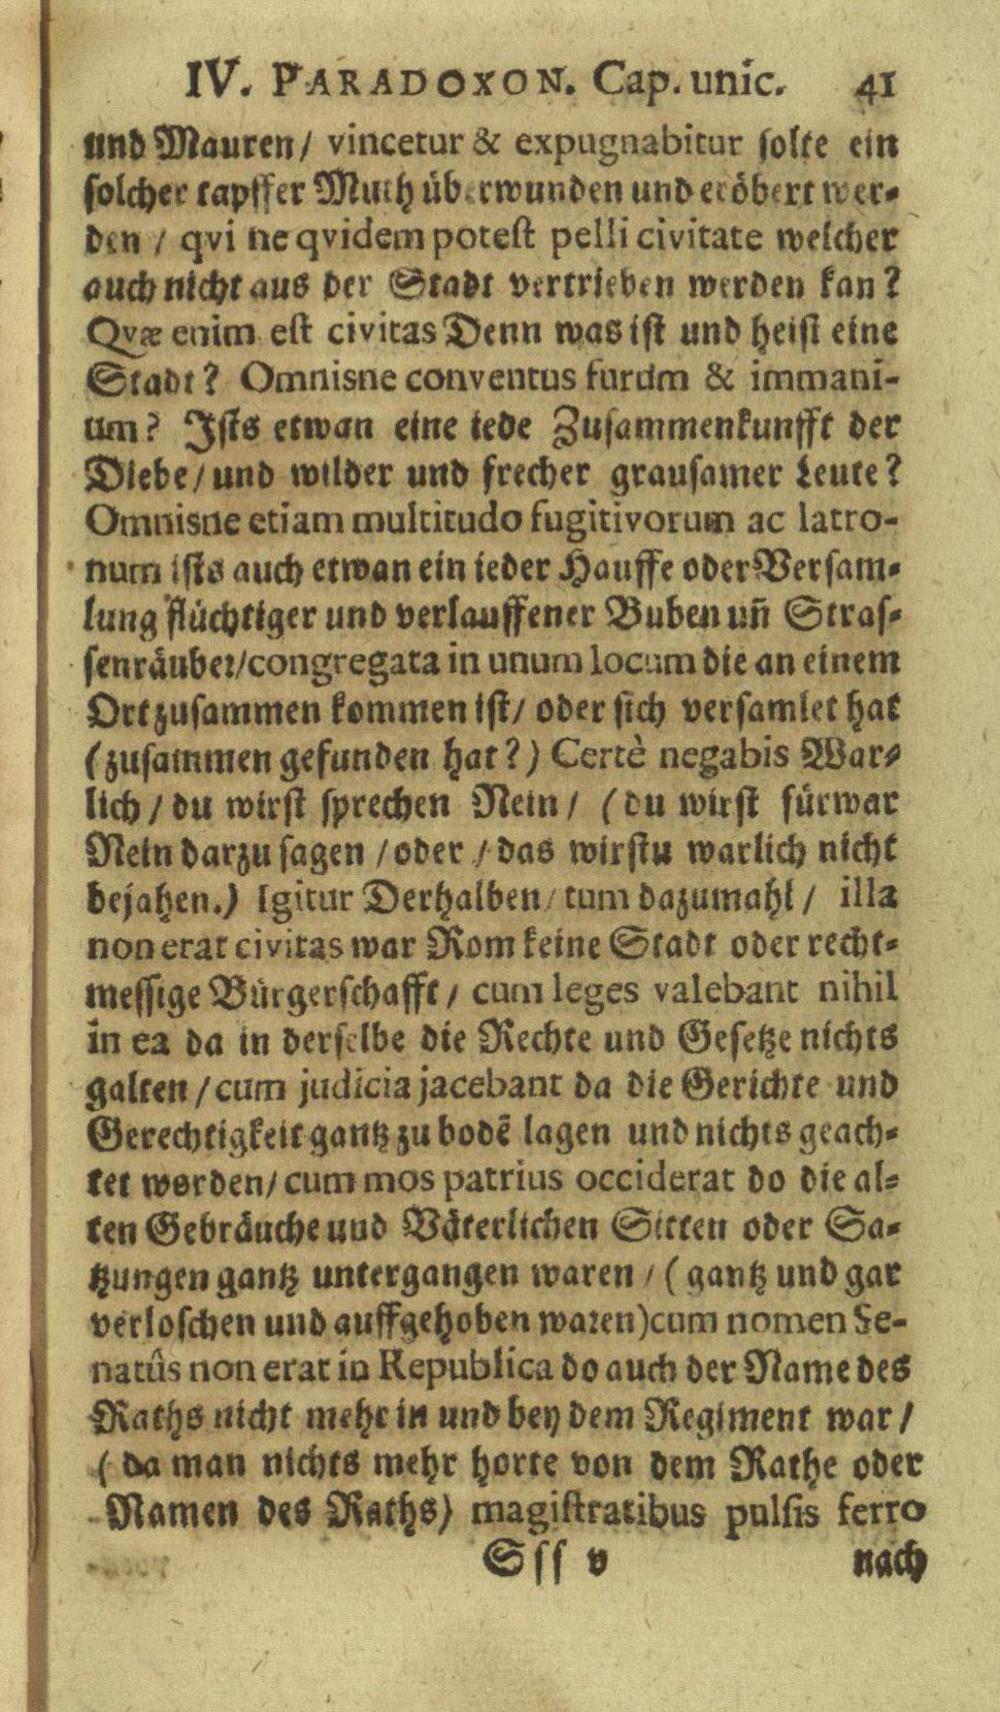 IV. PARADOXON. Cap. unic. 41
und Mauren / vincetur & expugnabitur solte ein
solcher tapffer Muth überwunden und eröbert wer-
den / qvi ne qvidem potest pelli civitate welcher
auch nicht aus der Stadt vertrieben werden kan?
Qvæ enim est civitas Denn was ist und heist eine
Stadt? Omnisne conventus furum & immani-
um? Ists etwan eine iede Zusammenkunfft der
Diebe / und wilder und frecher grausamer Leute?
Omnisne etiam multitudo fugitivorum ac latro-
num ists auch etwan ein ieder Hauffe oder Versam-
lung flüchtiger und verlauffener Buben uñ Stras-
senräuber / congregata in unum locum die an einem
Ort zusammen kommen ist / oder sich versamlet hat
(zusammen gefunden hat?) Certè negabis War-
lich / du wirst sprechen Nein / (du wirst fürwar
Nein darzu sagen / oder / das wirstu warlich nicht
bejahen.) Igitur Derhalben / tum dazumahl / illa
non erat civitas war Rom keine Stadt oder recht-
messige Bürgerschafft / cum leges valebant nihil
in ea da in derselbe die Rechte und Gesetze nichts
galten / cum judicia jacebant da die Gerichte und
Gerechtigkeit gantz zu bodẽ lagen und nichts geach-
tet worden / cum mos patrius occiderat do die al-
ten Gebräuche und Väterlichen Sitten oder Sa-
tzungen gantz untergangen waren / (gantz und gar
verloschen und auffgehoben waren) cum nomen Se-
natûs non erat in Republica do auch der Name des
Raths nicht mehr in und bey dem Regiment war /
(da man nichts mehr horte von dem Rathe oder
Namen des Raths) magistratibus pulsis ferro
Sss v nach